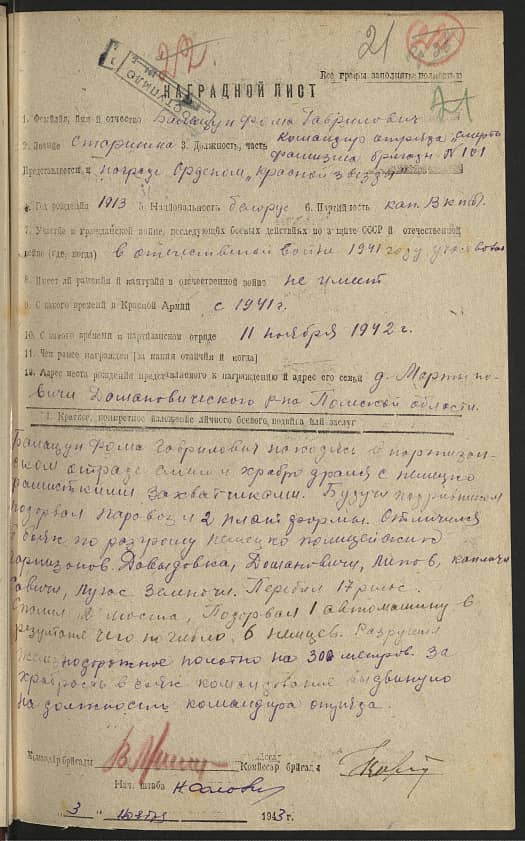 21
22
Все графы заполнять полностью
НАГРАДНОЙ ЛИСТ
1. Фамилия, имя и отчество Балацун Фома Гаврилович
2. Звание Старшина 3. Должность, часть Командир отряда „Смерть
фашизма бригады № 101
Представляется к награде Орденом „Красной звезды
4. Год рождения 1913 5. Национальность белорус 6. Партийность кан. Вкпб).
7. Участие в гражданской войне, последующих боевых действиях по защите СССР и отечественной
войне (где, когда) в отечественной войне 1941 году
8. Имеет ли ранения и контузии в отечественной войне не имеет
9. С какого времени в Красной Армии с 1941 г.
10. С какого времени в партизанском отряде 11 ноября 1942 г.
11. Чем ранее награжден [за какия отличия и когда]
12. Адрес места рождения представляемого к награждению и адрес его семьи д. Марты но-
вичи Домановического р-на Полесской области.
1. Краткое, конкретное изложение личного боевого подвига или заслуг
Балацун Фома Гаврилович находясь в партизан-
ском отряде смело и храбро дрался с немецко
фашисткими захватчиками. Будучи подрывником
подорвал паровоз и 2 платформы. Отличился
в боях по разгрому немецко полицейских
гарнизонов Давыдовка, Домановичи, Липов,
Савичи, Зеленочи. Перебил 17 рельс.
Спалил 2 моста, Подорвал 1 автомашину в
результате чего погибло 6 немцев. Разрушил
железнодорожное полотно на 300 метров. За
храбрость в боях командование выдвинуло
на должность командира отряда.
Командир бригады
Комиссар бригады
Нач. штаба
„3 " 1943 г.